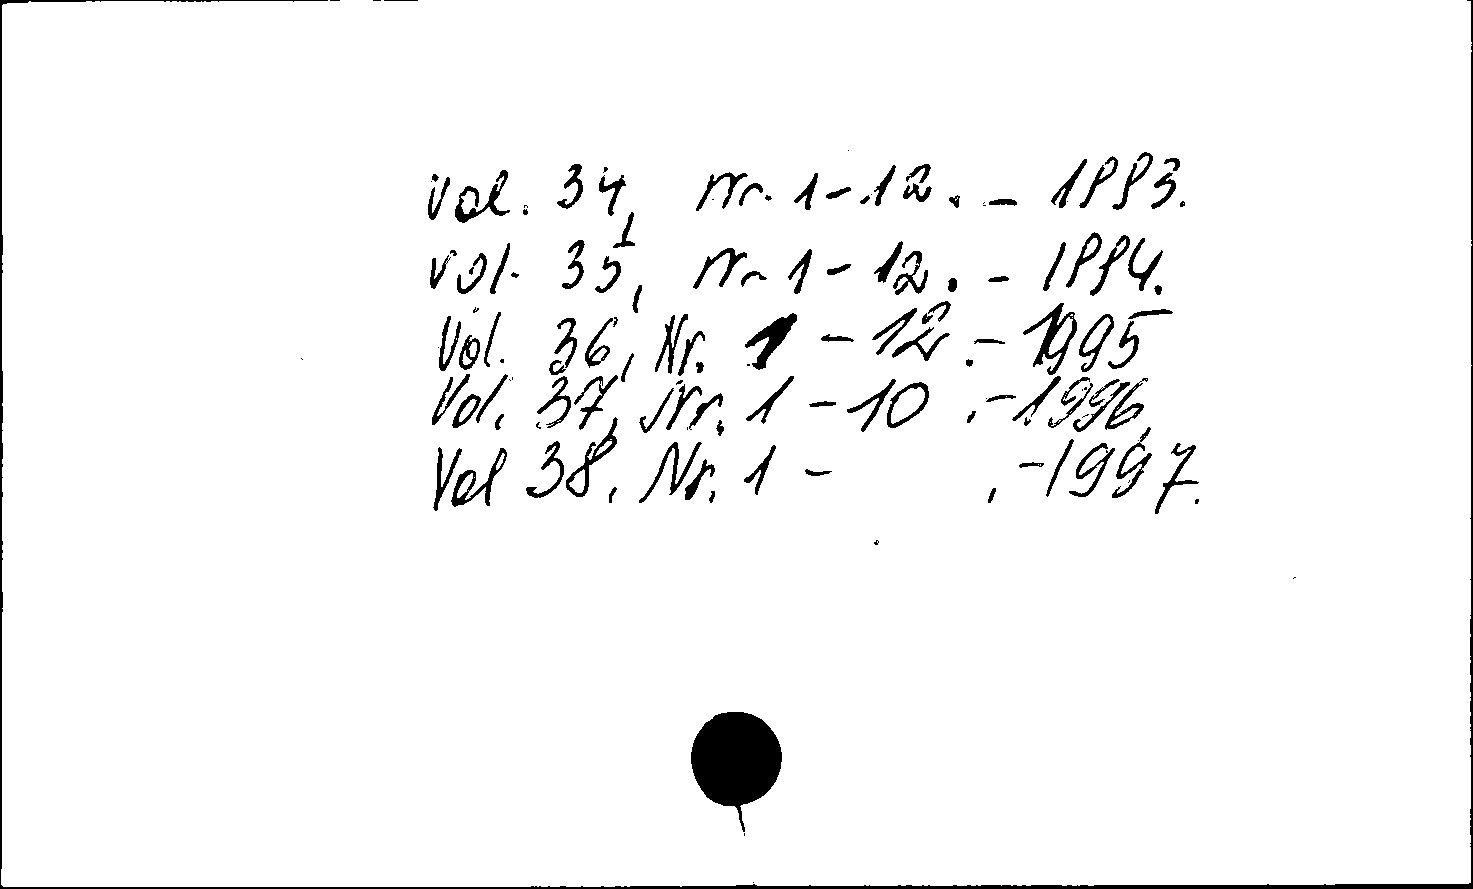 Vol. 34, Nr. 1-12. - 1993.
Vol. 35, Nr. 1-12. - 1994.
Vol. 36, Nr. 1 - 12. - 1995
Vol. 37, Nr. 1 - 10 . - 1996.
Vol 38, Nr. 1 - . - 1997.